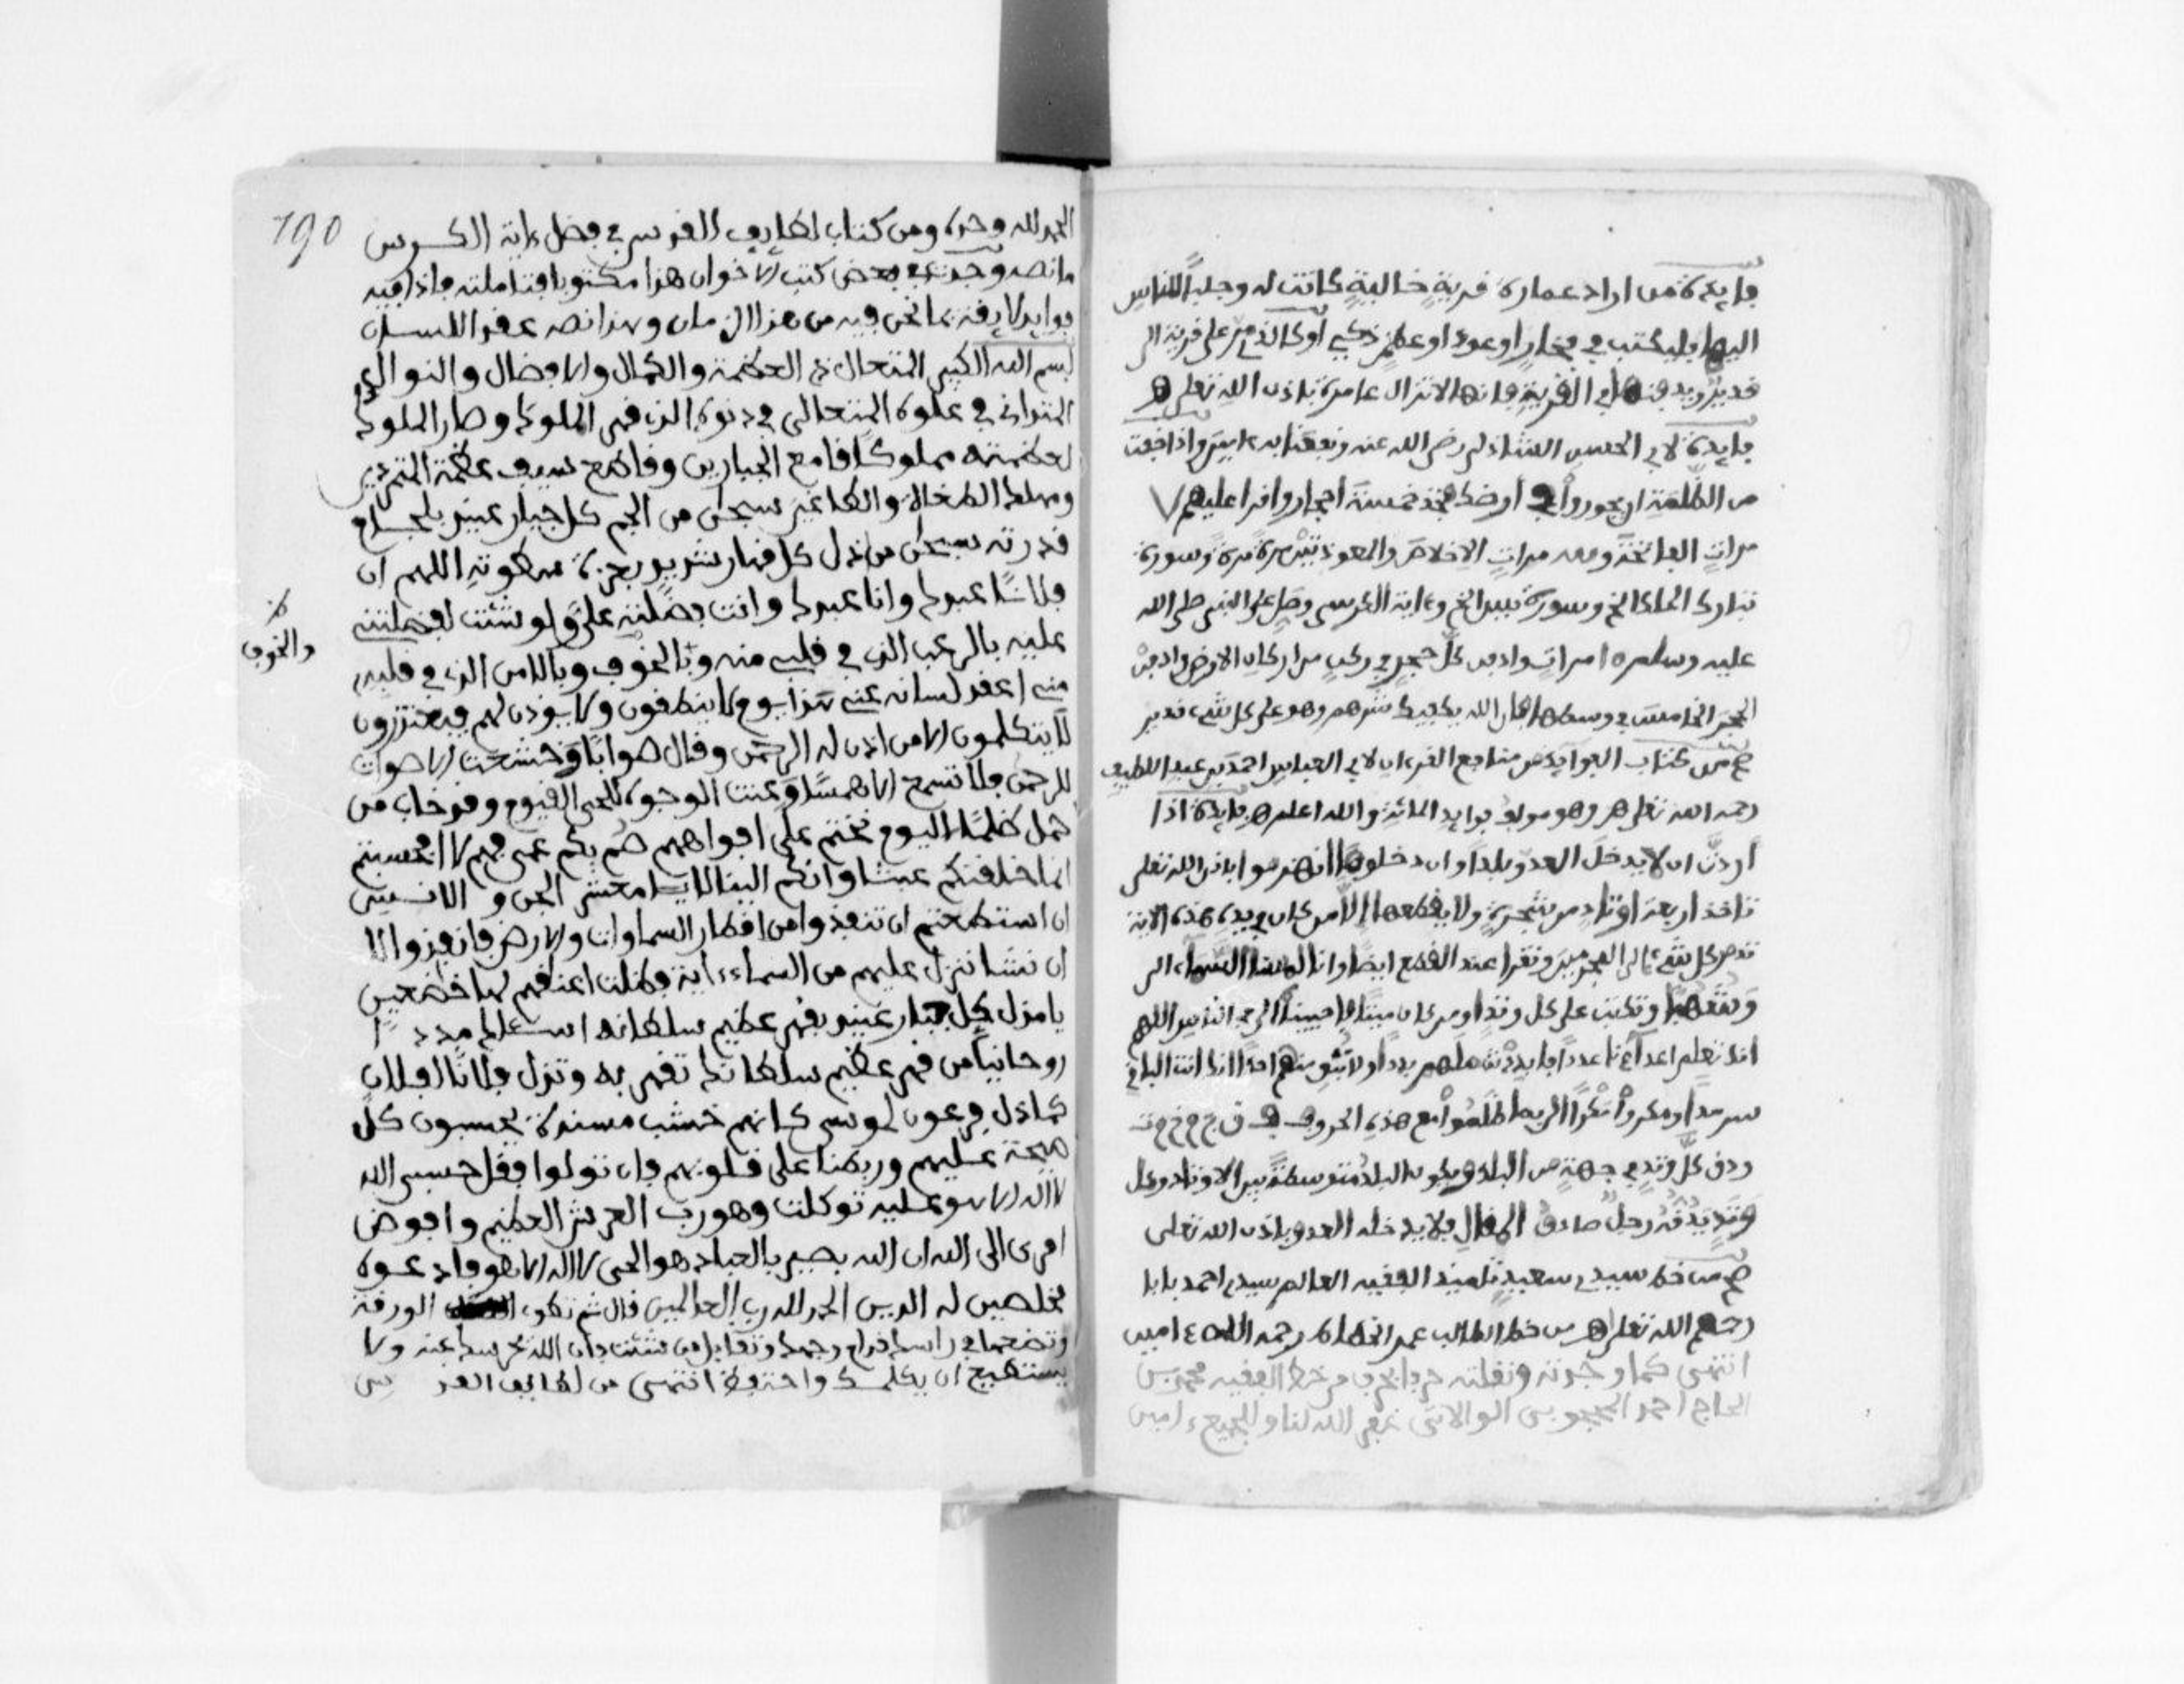 فايدة من اراد عمارة قرية خالية كانت له وجلب الناس
اليها فليكتب في فخار او عود او عظم ذكي او كالذي مر على قرية الى
قدير ويدفنها في القرية فانها لا تزال عامرة باذن الله تعلى
فايدة لابي الحسن الشاذلي رضي الله عنه ونفعنا به ءامين واذا خفت
من الظلمة ان يجوروا في ارضك فخذ خمسة احجار واقرا عليهم 7
مرات الفاتحة ومعه مرات الاخلاص والمعوذتين مرة مرة وسورة
تبارك الملك الخ وسورة يس الخ وءاية الكرسي وصل على النبي صلى الله
عليه وسلم مرات وادفن كل حجر في ركن من اركان الارض وادفن
الحجر الخامس في وسطها فان الله يكفيك شرهم وهو على كل شيء قدير
من كتاب الفوايد من منافع القرءان لابي العباس احمد بن عبد اللطيف
رحمه الله تعلى وهو مولف فوايد المائة والله اعلم فايدة اذا
اردت ان لا يدخل العدو بلدا وان دخلوها انهزموا باذن الله تعلى
تاخذ اربعة اوتاد من شجرة ولا يقطعها الا من كان في يده هذه الاية
تدمر كل شيء الى المجرمين وتقرا عند القطع ايضا وانا لمسنا السماء الى
وشهبا وتكتب على كل وتد او من كان ميتا فاحييناه الى في الناس اللهم
انك تعلم اعداءنا عددا فابددت شملهم بددا ولا تبق منهم احدا انك انت الباقي
سرمدا ومكروا مكرا الى بما ظلموا مع هذه الحروف
ودق كل وتد في جهة من البلد ويكون البلد متوسطة بين الاوتاد وكل
وتد يدقه رجل صادق المقال فلا يدخله العدو باذن الله تعلى
من خط سيدي سعيد تلميذ الفقيه العالم سيدي احمد بابا
رحمهم الله تعلى من خط الطالب عمر الخطاط رحمه الله ءامين
انتهى كما وجدته ونقلته حرفا بحرف من خط الفقيه محمد بن
الحاج احمد المحجوبي الوالاتي غفر الله لنا وللجميع ءامين
190
الحمد لله وحده ومن كتاب لطايف القدس في فضل ءاية الكرسي
ما نصه وجدت في بعض كتب الاخوان هذا مكتوبا فتاملته فاذا فيه
فوايد لايقة بما نحن فيه من هذا الزمان وهذا نصه عقد اللسان
بسم الله الكبير المتعال ذي العظمة والكمال والافضال والنوال
المتواني في علوه المتعالي في دنوه الذي قهر الملوك وصار الملوك
لعظمته مملوكا قامع الجبارين وقاطع بسيف عظمة المتمردين
ومهلك الطغاة والطاغين سبحن من الجم كل جبار عنيد بلجام
قدرته سبحن من اذل كل قهار شديد بعزة سطوته اللهم ان
فلانا عبدك وانا عبدك وانت فضلته علي ولو شئت لفضلتني
عليه بالرعب الذي في قلبي منه وبالخوف وبالامن الذي في قلبه
والخوف
مني اعقد لسانه عني هذا يوم لا ينطقون ولا يوذن لهم فيعتذرون
لا يتكلمون الا من اذن له الرحمن وقال صوابا وخشعت الاصوات
للرحمن فلا تسمع الا همسا وعنت الوجوه للحي القيوم وقد خاب من
حمل ظلما اليوم نختم على افواههم صم بكم عمي فهم لا افحسبتم
انما خلقنكم عبثا وانكم الينا لا يا معشر الجن والانس
ان استطعتم ان تنفذوا من اقطار السماوات والارض فانفذوا الا
ان نشا ننزل عليهم من السماء ءاية فظلت اعنقهم لها خضعين
يا مذل كل جبار عنيد بقهر عظيم سلطانه اسئلك مددا
روحانيا من قهر عظيم سلطانك تقهر به وتذل فلانا الفلان
كما ذل فرعون لموسى كانهم خشب مسندة يحسبون كل
صيحة عليهم وربطنا على قلوبهم فان تولوا فقل حسبي الله
لا اله الا هو عليه توكلت وهو رب العرش العظيم وافوض
امري الى الله ان الله بصير بالعباد هو الحي لا اله الا هو فادعوه
مخلصين له الدين الحمد لله رب العالمين قال ثم تطوي الورقة
وتضعها في راسك وتقابل من شئت فان الله يخرسه عنه ولا
يستطيع ان يكلمك واحتفظ انتهى من لطايف القدس